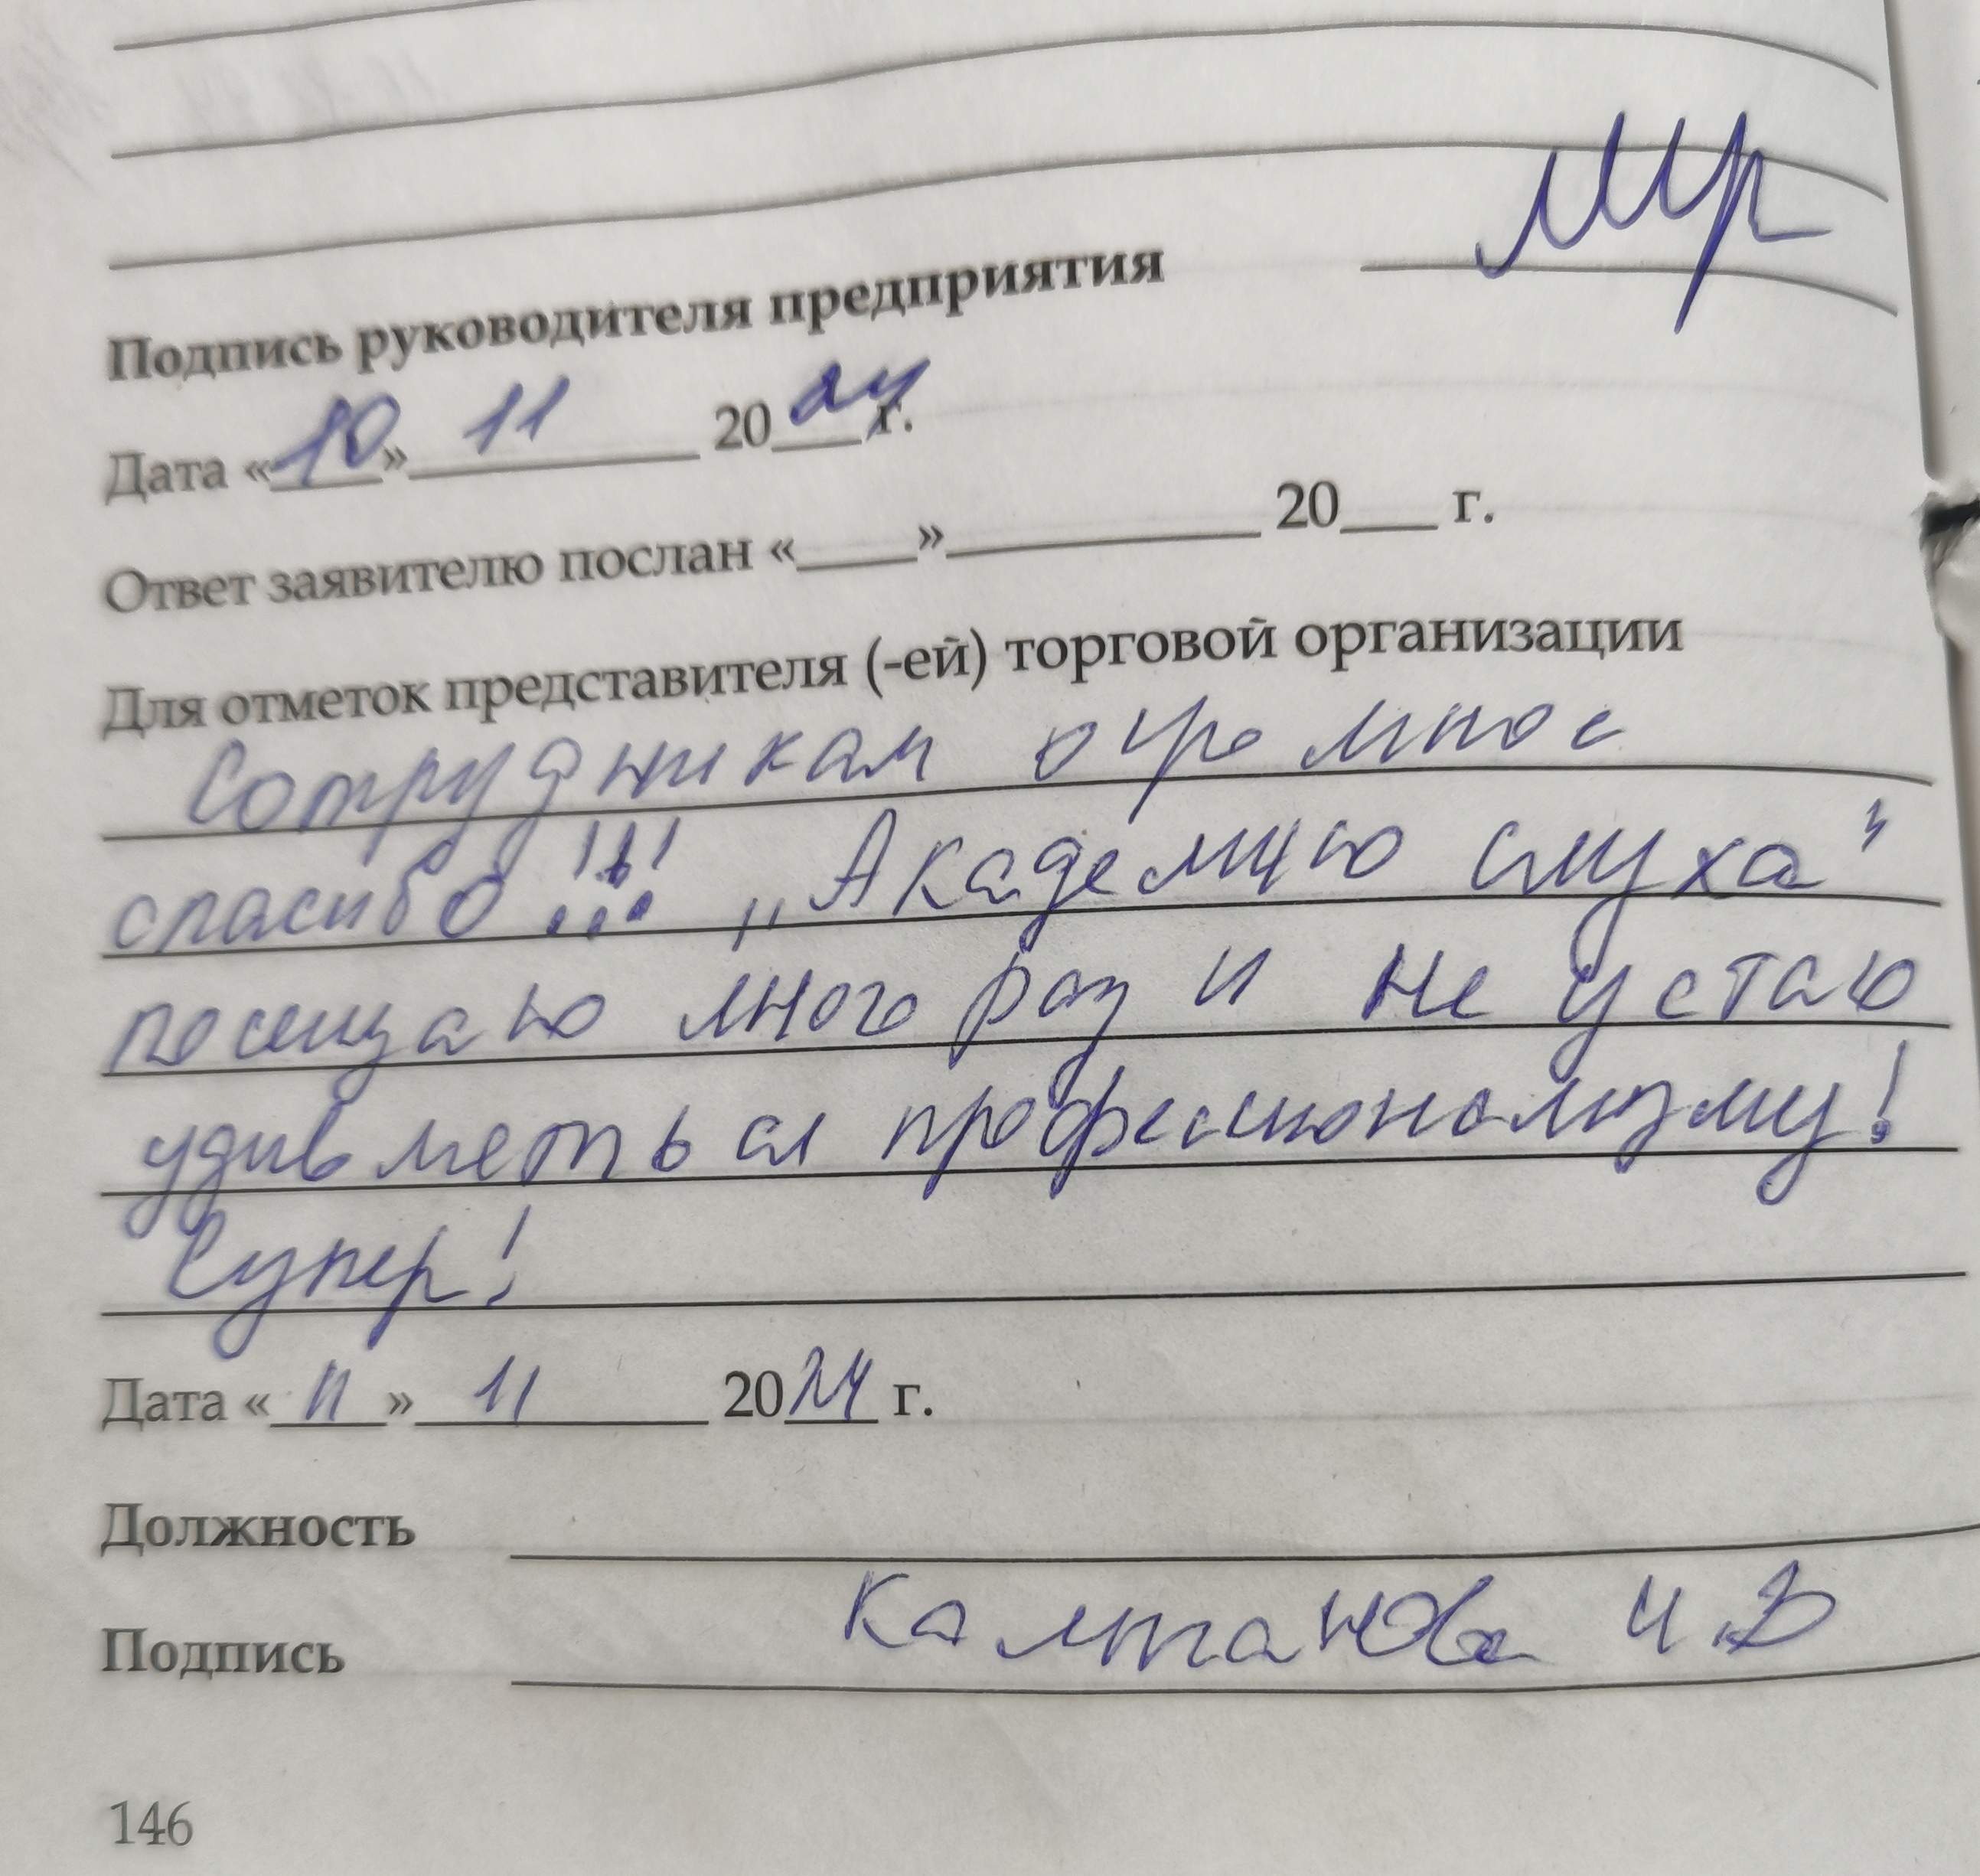 Подпись руководителя предприятия
Дата «10» 11 2024 г.
Ответ заявителю послан «____»____________ 20___ г.
Для отметок представителя (-ей) торговой организации
Сотрудникам огромное
спасибо!!! „Академию слуха"
посещаю много раз и не устаю
удивляться профессионализму!
Супер!
Дата «11» 11 2024 г.
Должность
Подпись И.В
146